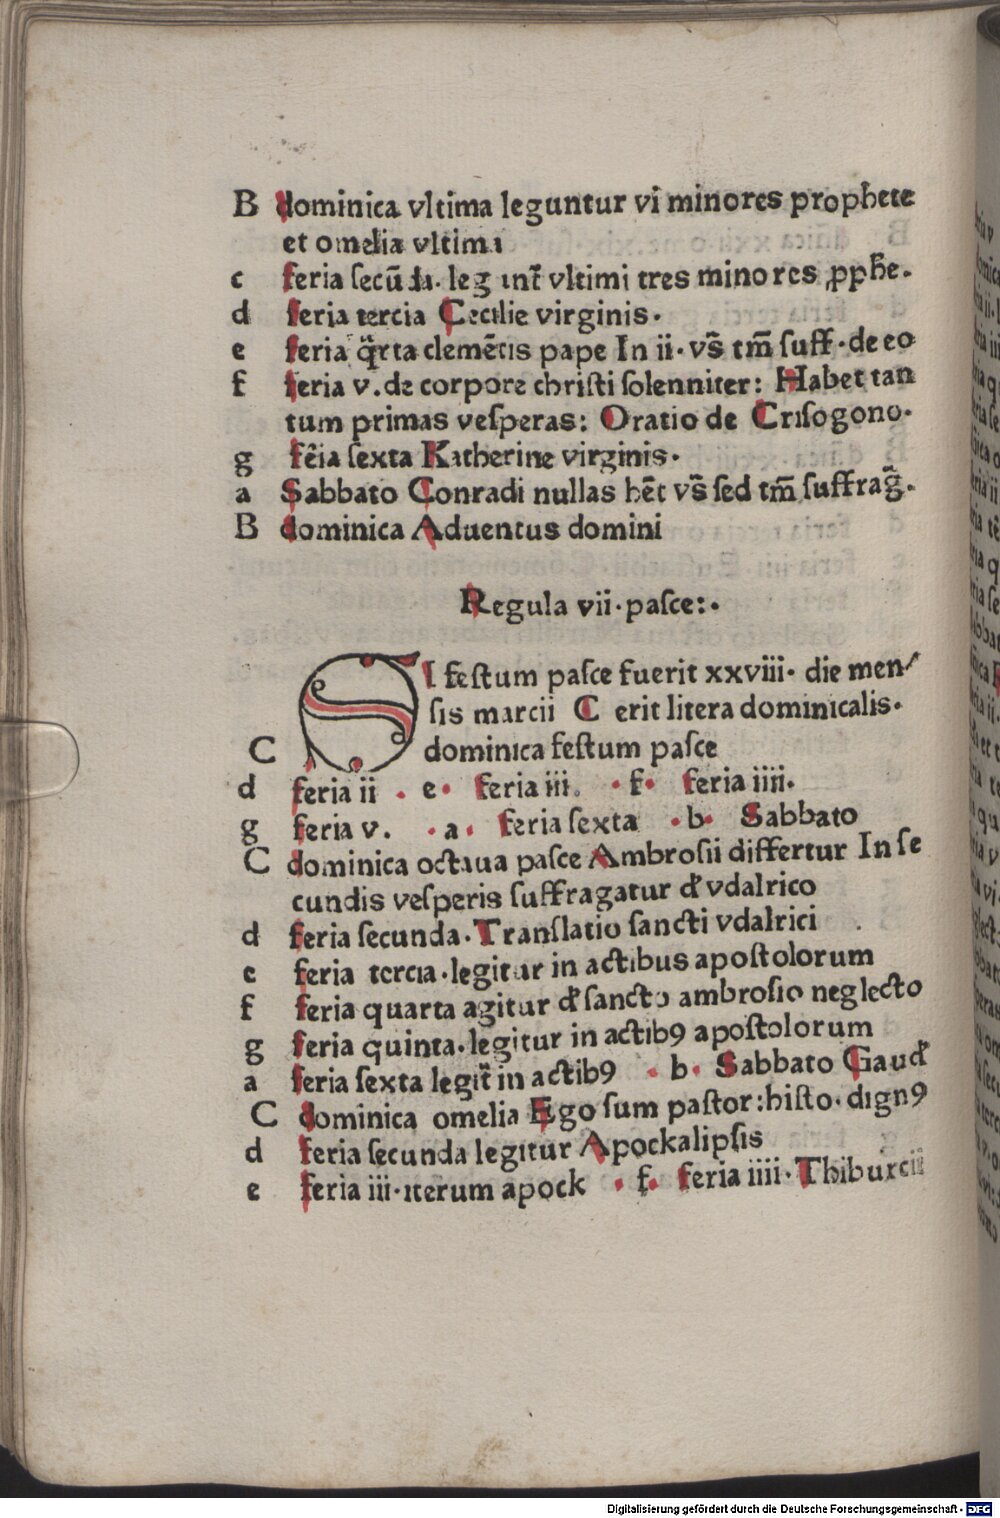 B dominica vltima leguntur vi minores prophete
et omelia vltima
c feria secūda. leguntr̄ vltimi tres minores ꝓph̄e.
d feria tercia Cecilie virginis.
e feria qͣrta clemētis pape In ii. vs̄ tm̄ suff. de eo
f feria v. de corpore christi solenniter: Habet tan
tum primas vesperas: Oratio de Crisogono.
g fēia sexta Katherine virginis.
a Sabbato Conradi nullas hēt vs̄ sed tm̄ suffrag̃.
B dominica Aduentus domini
Regula vii. pasce:.
SI festum pasce fuerit xxviii. die men/
sis marcii C erit litera dominicalis.
C dominica festum pasce
d feria ii . e. feria iii. . f. feria iiii.
g feria v. . a. feria sexta . b. Sabbato
C dominica octaua pasce Ambrosii differtur In se
cundis vesperis suffragatur đ vdalrico
d feria secunda. Translatio sancti vdalrici
e feria tercia. legitur in actibus apostolorum
f feria quarta agitur đ sancto ambrosio neglecto
g feria quinta. legitur in actibꝯ apostolorum
a feria sexta legit̄ in actibꝯ . b. Sabbato Gauđ
C dominica omelia Ego sum pastor: histo. dignꝯ
d feria secunda legitur Apockalipsis
e feria iii. iterum apock . f. feria iiii. Thiburcii
Digitalisierung gefördert durch die Deutsche Forschungsgemeinschaft - DFG